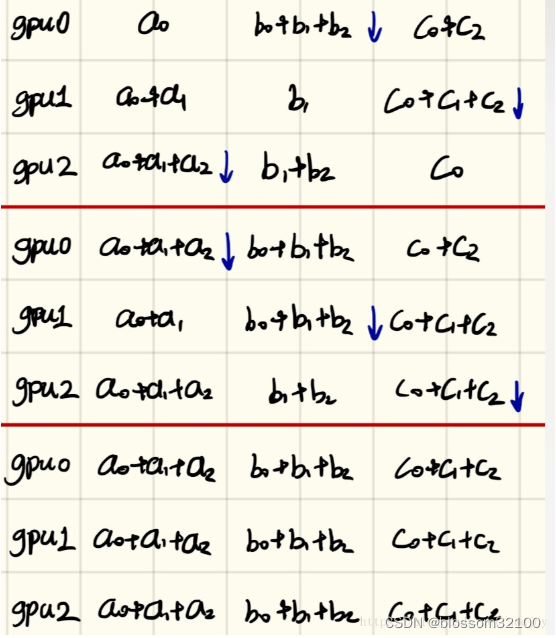 gpu0 a₀ b₀+b₁+b₂ ↓ c₀+c₂
gpu1 a₀+a₁ b₁ c₀+c₁+c₂ ↓
gpu2 a₀+a₁+a₂ ↓ b₁+b₂ c₀
gpu0 a₀+a₁+a₂ ↓ b₀+b₁+b₂ c₀+c₂
gpu1 a₀+a₁ b₀+b₁+b₂ ↓ c₀+c₁+c₂
gpu2 a₀+a₁+a₂ b₁+b₂ c₀+c₁+c₂ ↓
gpu0 a₀+a₁+a₂ b₀+b₁+b₂ c₀+c₁+c₂
gpu1 a₀+a₁+a₂ b₀+b₁+b₂ c₀+c₁+c₂
gpu2 a₀+a₁+a₂ b₀+b₁+b₂ c₀+c₁+c₂
CSDN @blossom32100